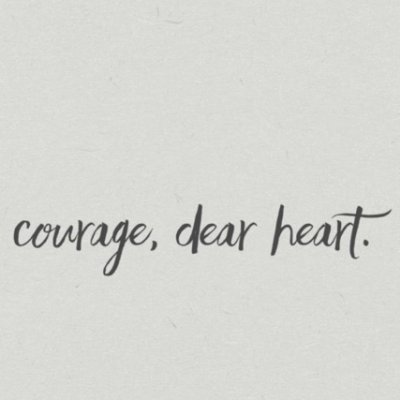 courage, dear heart.